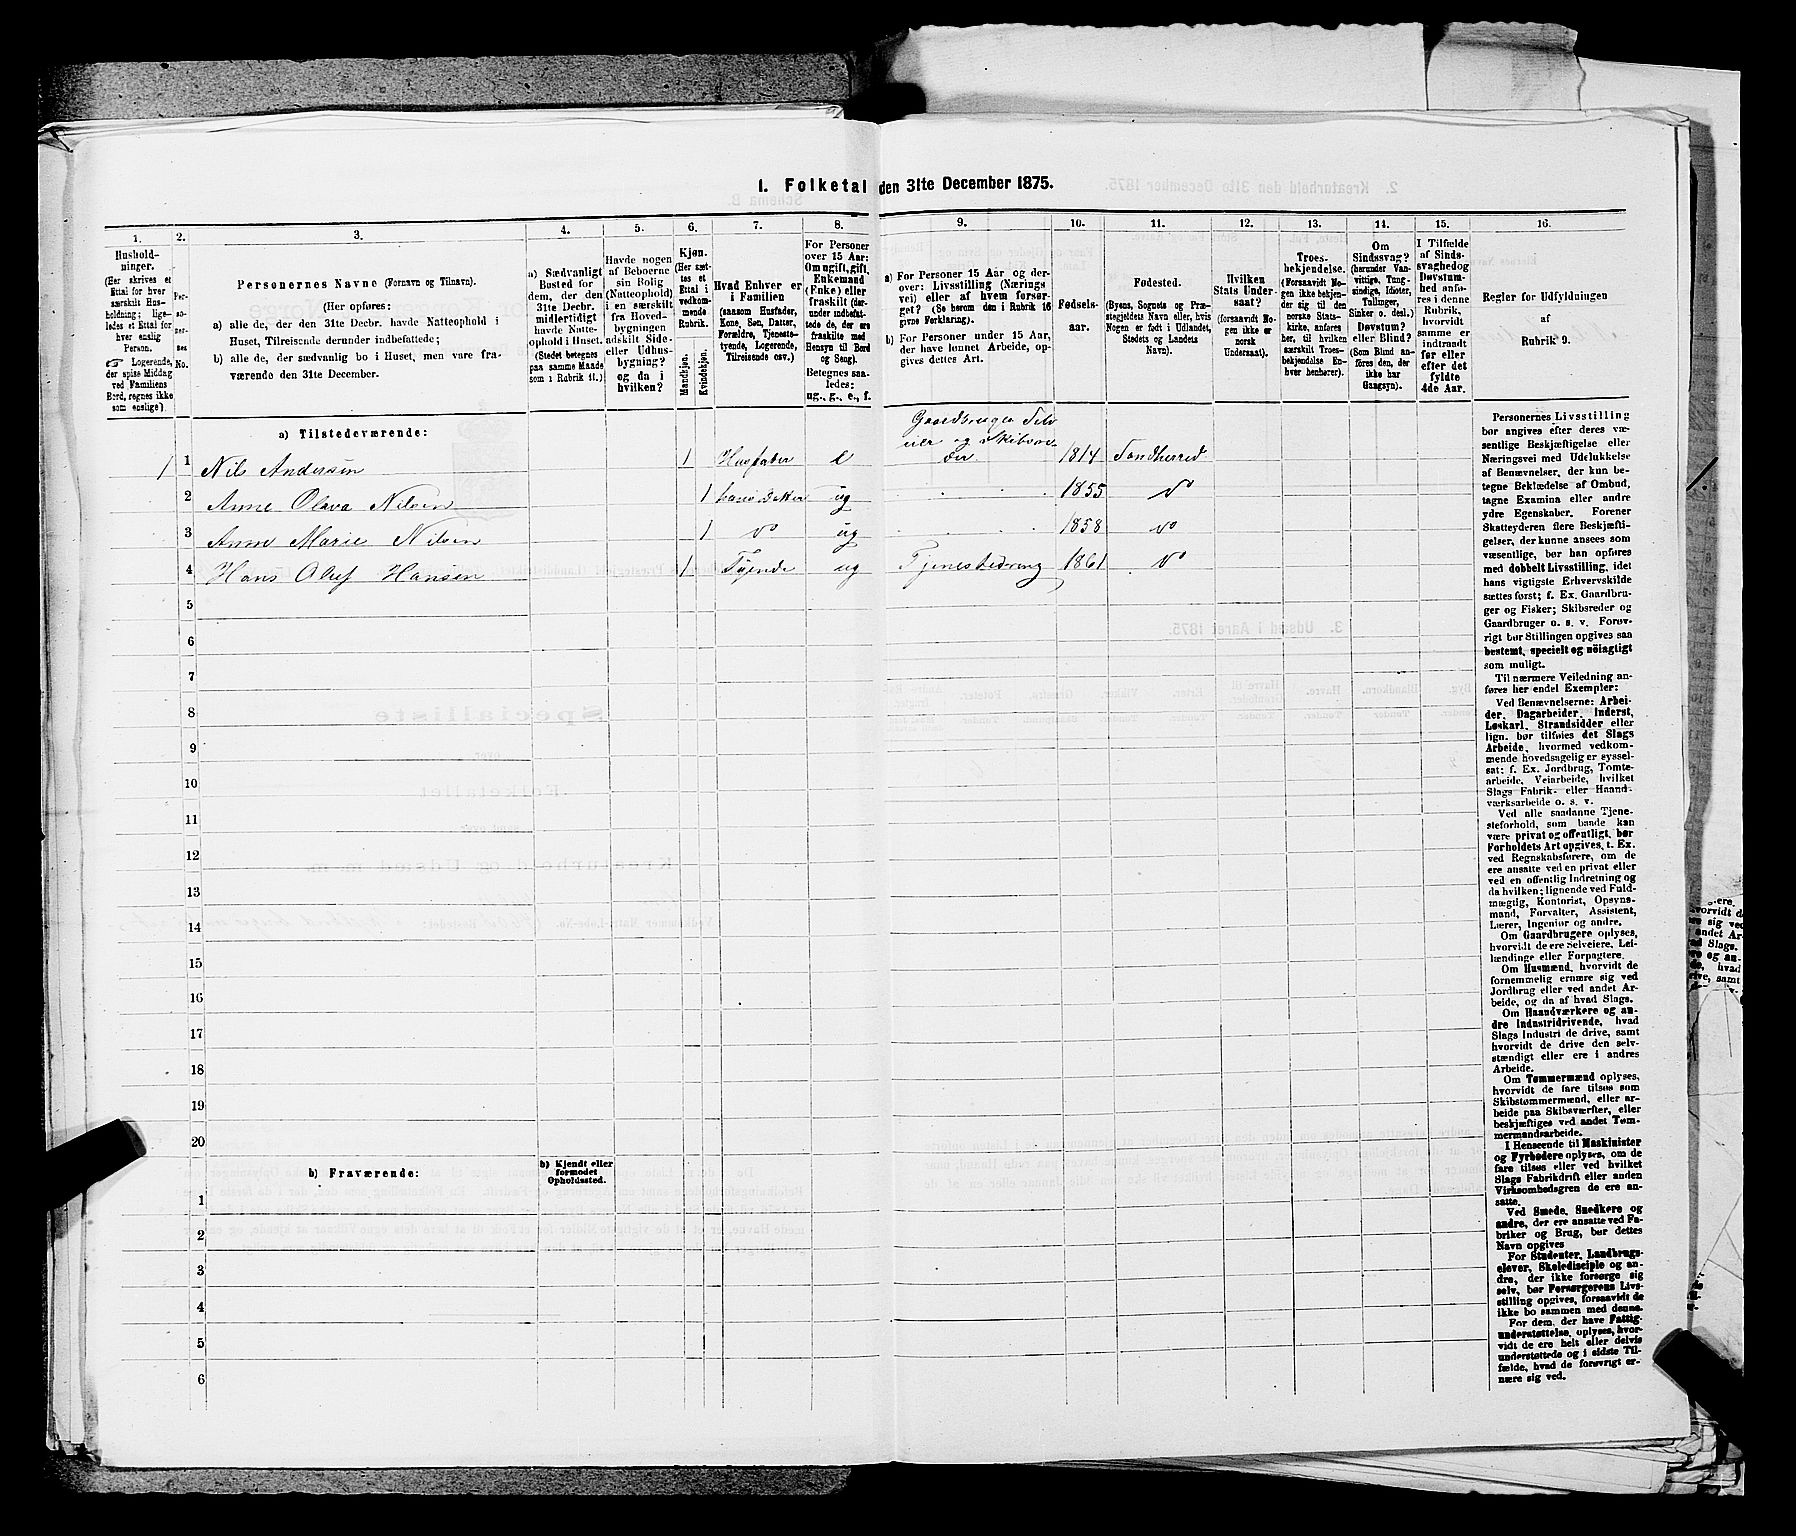 1. Folketal den 31te December 1875.
1.
Hushold-
ninger.
(Her skrives et
Ettal for hver
særskilt Hus-
holdning; lige-
ledes et Ettal for
hver enslig
Person.
☞ Logerende,
der spise Middag
ved Familiens
Bord, regnes ikke
som enslige).
2.
Per-
so-
ner-
nes
No.
3.
Personernes Navne (Fornavn og Tilnavn).
(Her opføres:
a) alle de, der den 31te Decbr. havde Natteophold i
Huset, Tilreisende derunder indbefattede;
b) alle de, der sædvanlig bo i Huset, men vare fra-
værende den 31te December.
4.
a) Sædvanligt
Bosted for
dem, der den
31te Decbr.
midlertidigt
havde Natte-
ophold i Huset.
(Stedet betegnes
paa samme Maade
som i Rubrik 11.)
5.
Havde nogen
af Beboerne
sin Bolig
(Natteophold)
i en særskilt
fra Hoved-
bygningen
adskilt Side-
eller Udhus-
bygning?
og da i
hvilken?
6.
Kjøn.
(Her sæt-
tes et
Ettal i
vedkom-
mende
Rubrik.
Mandkjøn.
Kvindekjøn.
7.
Hvad Enhver er
i Familien
(saasom Husfader,
Kone, Søn, Datter,
Forældre, Tjeneste-
tyende, Logerende,
Tilreisende osv.)
8.
For Personer
over 15 Aar:
Om ugift, gift,
Enkemand
(Enke) eller
fraskilt (der-
under indbefat-
tede de, der ere
fraskilte med
Hensyn til Bord
og Seng).
Betegnes saa-
ledes:
ug., g., e., f.
9.
a) For Personer 15 Aar og der-
over: Livsstilling (Nærings-
vei) eller af hvem forsør-
get? (Se herom den i Rubrik 16
givne Forklaring).
b) For Personer under 15 Aar,
der have lønnet Arbeide, op-
gives dettes Art.
10.
Fødsels-
aar.
11.
Fødested.
(Byens, Sognets og Præ-
stegjeldets Navn, eller, hvis
Nogen er født i Udlandet,
Stedets og Landets
Navn).
12.
Hvilken
Stats Under-
saat?
(Forsaavidt No-
gen ikke er
norsk
Undersaat).
13.
Troes-
bekjendelse.
(Forsaavidt No-
gen ikke bekjen-
der sig til den
norske Stats-
kirke, anføres
her, til hvilken
særskilt Troes-
bekjendelse En-
hver henhører).
14.
Om
Sindssvag?
(herunder Van-
vittige, Tung-
sindige, Idioter,
Tullinger,
Sinker o. desl.)
Døvstum?
eller Blind?
(Som Blind an-
føres den, der
ikke har
Gangsyn).
15.
I Tilfælde
af Sinds-
svaghed og
Døvstum-
hed anfø-
res i denne
Rubrik,
hvorvidt
samme er
indtraadt
før eller
efter det
fyldte
4de Aar.
16.
Regler for Udfyldningen
af
Rubrik 9.
a) Tilstedeværende:
1 1 Nils Andersen 1 Husfader e Gaardbruger Selv-
eier og Skibsre-
der. 1814 Sandherred
2 Anne Olava Nilsen 1 hans Datter ug 1855 do
3 Anne Marie Nilsen 1 do ug 1858 do
4 Hans Oluf Hansen 1 Tyende ug Tjenestedreng 1861 do
5
6
7
8
9
10
11
12
13
14
15
16
17
18
19
20
b) Fraværende:
b) Kjendt eller
formodet
Opholdssted.
1
2
3
4
5
6
Personernes Livsstilling
bør angives efter deres væ-
sentlige Beskjæftigelse eller
Næringsvei med Udelukkelse
af Benævnelser, der kun be-
tegne Beklædelse af Ombud,
tagne Examina eller andre
ydre Egenskaber. Forener
Skatteyderen flere Beskjæfti-
gelser, der kunne ansees som
væsentlige, bør han opføres
med dobbelt Livsstilling, idet
hans vigtigste Erhvervskilde
sættes først; f. Ex. Gaardbru-
ger og Fisker; Skibsreder og
Gaardbruger o. s. v. Forøv-
rigt bør Stillingen opgives saa
bestemt, specielt og nöiagtigt
som muligt.
Til nærmere Veiledning an-
føres her endel Exempler:
Ved Benævnelserne: Arbei-
der, Dagarbeider, Inderst,
Løskarl, Strandsidder eller
lign. bør tilføies det Slags
Arbeide, hvormed vedkom-
mende hovedsagelig er syssel-
sat: f. Ex. Jordbrug, Tomte-
arbeide, Veiarbeide, hvilket
Slags Fabrik- eller Haand-
værksarbeide o. s. v.
Ved alle saadanne Tjene-
steforhold, som baade kan
være privat og offentligt, bør
Forholdets Art opgives, t. Ex.
ved Regnskabsførere, om de
ere ansatte ved en privat eller
ved en offentlig Indretning og
da hvilken; lignende ved Fuld-
mægtig, Kontorist, Opsyns-
mand, Forvalter, Assistent,
Lærer, Ingeniør og andre.
Om Gaardbrugere oplyses,
hvorvidt de ere Selveiere, Lei-
lændinge eller Forpagtere.
Om Husmænd, hvorvidt de
fornemmelig ernære sig ved
Jordbrug eller ved andet Ar-
beide, og da af hvad Slags.
Om Haandværkere og an-
dre Industridrivende, hvad
Slags Industri de drive, samt
hvorvidt de drive den selv-
stændigt eller ere i andres
Arbeide.
Om Tømmermænd oplyses,
hvorvidt de fare tilsøs som
Skibstømmermænd, eller ar-
beide paa Skibsværfter, eller
beskjæftiges ved andet Tøm-
mermandsarbeide.
I Henseende til Maskinister
og Fyrbødere oplyses, om de
fare tilsøs eller ved hvilket
Slags Fabrikdrift eller anden
Virksomhedsgren de ere an-
satte.
Ved Smede, Snedkere og
andre, der ere ansatte ved Fa-
briker og Brug, bør dettes
Navn opgives
For Studenter, Landbrugs-
elever, Skoledisciple og an-
dre, der ikke forsørge sig
selv, bør Forsørgerens Livs-
stilling opgives, forsaavidt de
ikke bo sammen med denne.
For dem, der have Fattig-
understøttelse, oplyses, hvor-
vidt de ere helt eller delvis
understøttede og i sidste Til-
fælde, hvad de forøvrigt er-
nære sig ved.